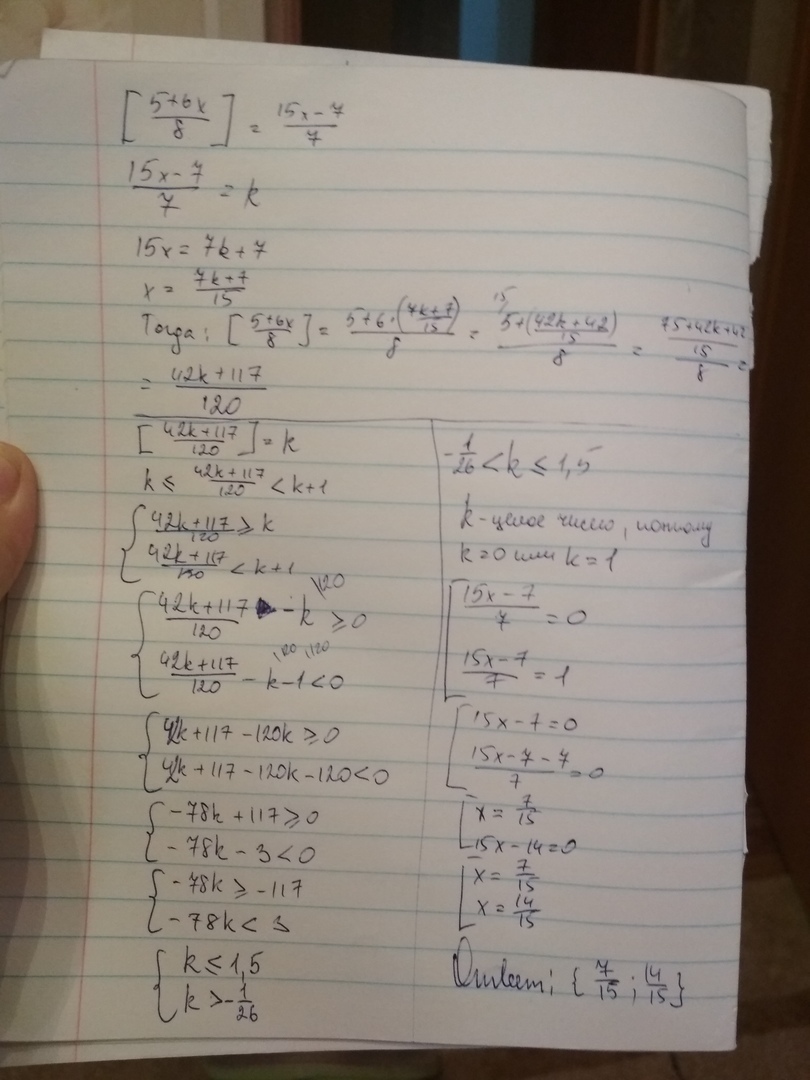 [(5+6x)/8] = (15x-7)/7
(15x-7)/7 = k
15x = 7k+7
x = (7k+7)/15
Тогда: [(5+6x)/8] = (5+6·((7k+7)/15))/8 = (15\5+((42k+42)/15))/8 = ((75+42k+42)/15)/8 =
= (42k+117)/120
[(42k+117)/120] = k
k ≤ (42k+117)/120 < k+1
{ (42k+117)/120 ≥ k
(42k+117)/120 < k+1
{ (42k+117)/120 - k\120 ≥ 0
(42k+117)/120 - k\120 - 1\120 < 0
{ 42k+117-120k ≥ 0
42k+117-120k-120<0
{ -78k+117≥0
-78k-3<0
{ -78k ≥ -117
-78k < 3
{ k ≤ 1,5
k > -1/26
-1/26 < k ≤ 1,5
k - целое число, поэтому
k=0 или k=1
[ (15x-7)/7 = 0
(15x-7)/7 = 1
[ 15x-7=0
(15x-7-7)/7 = 0
[ x = 7/15
15x-14=0
[ x = 7/15
x = 14/15
Ответ: {7/15; 14/15}